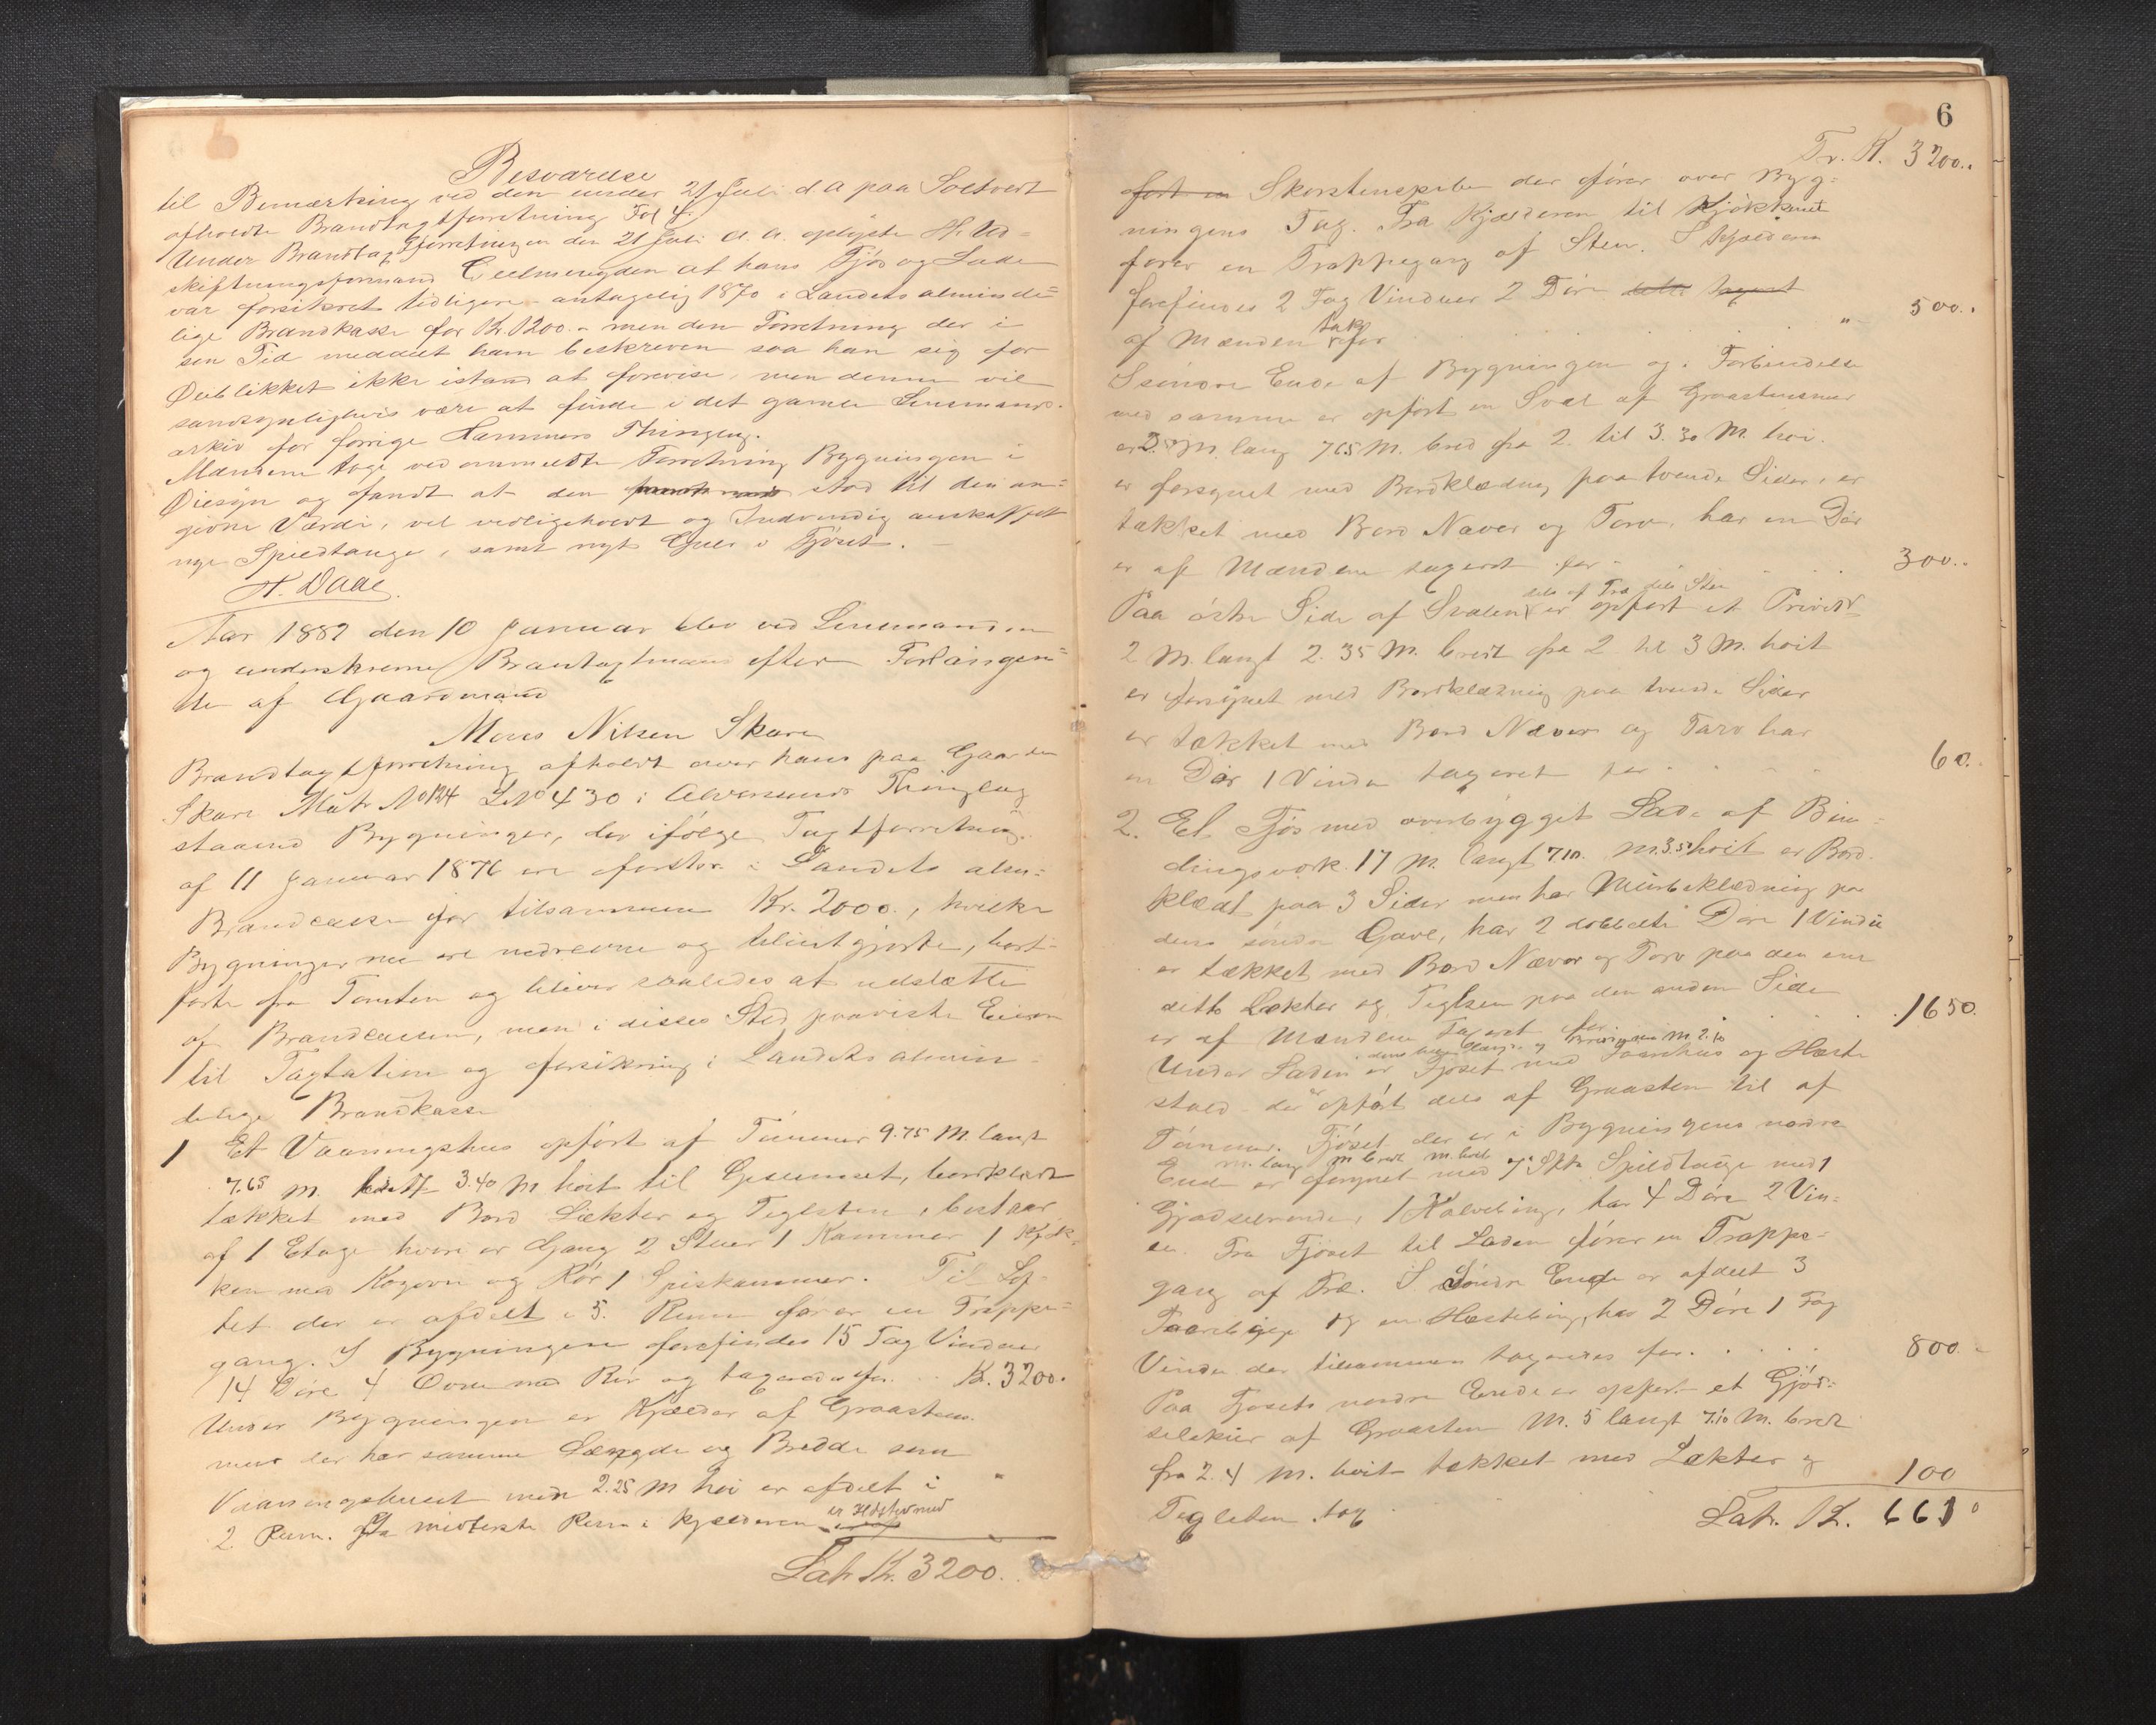 Besvarelse
til Bemærkning ved den under 21 Juli d A paa Soltvedt
afholdte Brandtagtforretning Fol 4.
Under Brandtagtforretningen den 21 Juli d. A. oplyste Hr Ud=
skiftningsformand at hans Fjøs og Lade
var forsikret tidligere - antagelig 1870 i Landets alminde=
lige Brandkasse for Kr. 1200. - men den Forretning der i
sin Tid meddelt ham beskreven saa han sig for
Øieblikket ikke istand at forevise, men denne vil
sandsynligvis være at finde i det gamle Lensmands=
arkiv for forrige Hammers Thinglag.
Mændene toge ved anmeldte Forretning Bygningen i
Øiesyn og fandt at den stod til den an=
givne Værdi, vel vedligeholdt og Indvendig anskaffet
nye Spildtange, samt nyt Gulv i Fjøset. -
H. Daae.
Aar 1882 den 10 Januar blev ved Lensmanden
og underskrevne Brantagtmænd efter Forlangen=
de af Gaardmand
Mons Nilsen Skare
Brandtagtforretning afholdt over hans paa Gaarden
Skare Matr No 124 LNo 430 i Alversunds Thinglag
staaend Bygninger, der ifølge Tagtforretning
af 11 Januar 1876 ere forsikr. i Landets alm:
Brandcasse for tilsammen Kr. 2000., hvilke
Bygninger nu ere nedrevne og tilintgjorte, bort=
førte fra Tomten og bliver saaledes at udslætte
af Brandcassen, men i disses Sted paaviste Eieren
til Tagtation og forsikring i Landets almin=
delige Brandkasse
1 Et Vaaningshus opført af Tømmer 9.75 M. langt
7.65 M. bredt 3.40 M høit til Gesimset, bordklædt
tækket med Bord Lækter og Teglsten, bestaar
af 1 Etage hvori er Gang 2 Stuer 1 Kammer 1 Kjøk=
ken med Kogeovn og Rør 1 Spiskammer. Til Lof=
tet der er afdelt i 5. Rum fører en Trappe=
gang. I Bygningen forefindes 15 Fag Vinduer
14 Døre 4 Ovne med Rør og tageredes for .. K. 3200.
Under Bygningen er Kjælder af Graastens
mur der har samme Længde og Bredde som
Vaaningshuset men 2.25 M høi er afdelt i "
2. Rum. Fra midterste Rum i Kjælderen er Ildsted med
Lat. Kr. 3200.
6
Tr. K. 3200..
ført en Skorstenspibe der fører over Byg=
ningens Tag. Fra Kjælderen til Kjøkkenet
fører en Trappegang af Sten. I Kjælderen
forefindes 2 Fag Vinduer 2 Døre
af Mændene tak for " 500..
I søndre Ende af Bygningen og i Forbindelse
med samme er opført en Sval af Graastensmur
er M. lang 7.65 M. bred fra 2. til 3.30 M. høi.
er forsynet med Bordklædnig paa tvende Sider, er
tækket med Bord Næver og Torv, har en Dør
er af Mændene tageret for . . . 300..
Paa østre Side af Svalen dels af Træ dels Sten er opført et Privet
2 M. langt 2.35 M. bredt fra 2 til 3 M. høit
er forsynet med Bordklædning paa tvende Sider
er tækket med Bord Næver og Torv har
en Dør 1 Vindu tageret for . . . . 60.
2. Et Fjøs med overbygget Lade af Bin=
dingsværk. 17 M. langt 7.10. M. 3.5 høit er Bord=
klædt paa 3 Sider men har Murbeklædning paa
dens søndre Gavl, har 2 dobbelte Døre 1 Vindu
er tækket med Bord Næver og Torv paa den ene
ditto Lækter og Teglsten paa den anden Side
er af Mændene tageret for . . . 1650.
Under Laden er Fjøset med og Heste
stald - der er opført dels af Graasten til af
Tømmer. Fjøset der er i Bygningens nordre
M. lang M bredt M. høit
Ende er forsynet med Spildtange med 1
Gjødselrende, 1 Kalvebing, har 4 Døre 2 Vin=
du. Fra Fjøset til Laden fører en Trappe=
gang af Træ. I Søndre Ende er afdelt 3
og en Hestebing, har 2 Døre 1 Fag
Vindu der tilsammen tageredes for . . . . 800. -
Paa Fjøsets nordre Ende er opført et Gjød=
selskur af Graasten M. 5 langt 7.10 M. bredt
fra 2. 4 M. høit tækket med Lækter og
Teglsten tag 100
Lat. K. 6610